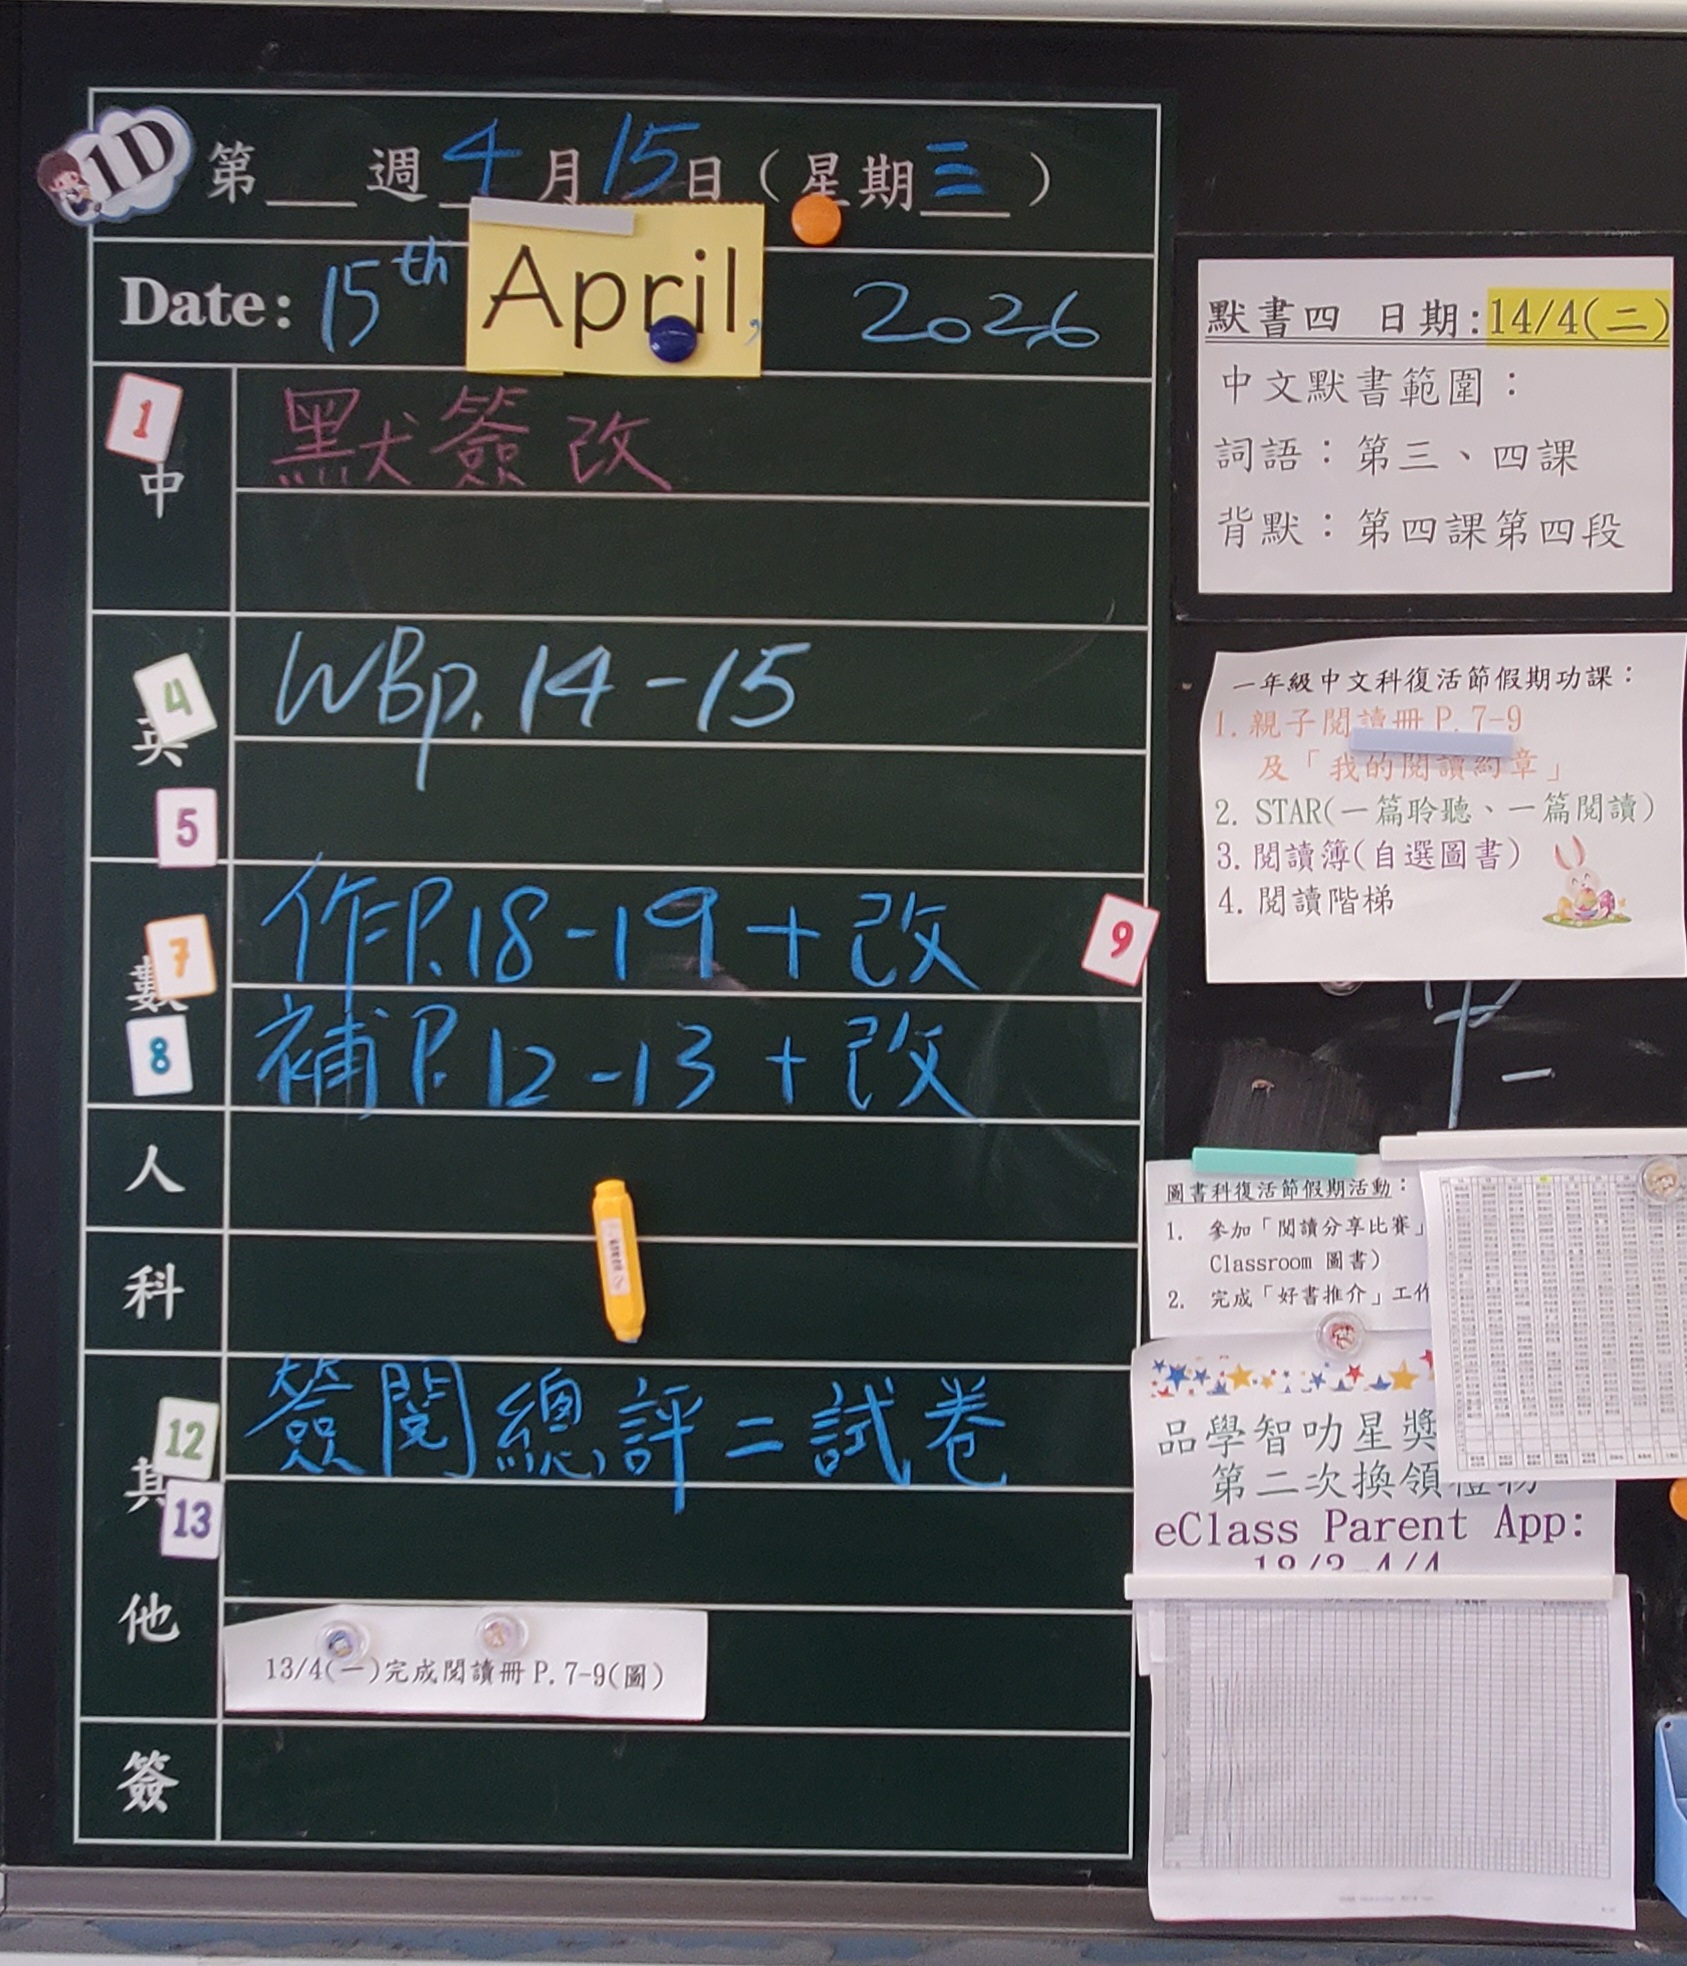 1D
第___週 4 月 15 日（星期三）
Date: 15th April, 2026
1
中
默簽改
4
英
WBp. 14-15
5
7
數
作P.18-19+改
9
8
補P.12-13+改
人
科
12
其
簽閱總評二試卷
13
他
13/4(一)完成閱讀冊P.7-9(圖)
簽
默書四 日期:14/4(二)
中文默書範圍：
詞語：第三、四課
背默：第四課第四段
一年級中文科復活節假期功課：
1. 親子閱讀冊 P.7-9
及「我的閱讀約章」
2. STAR(一篇聆聽、一篇閱讀)
3. 閱讀簿(自選圖書)
4. 閱讀階梯
圖書科復活節假期活動：
1. 參加「閱讀分享比賽」
Classroom 圖書)
2. 完成「好書推介」工作
品學智叻星獎
第二次換領禮物
eClass Parent App: